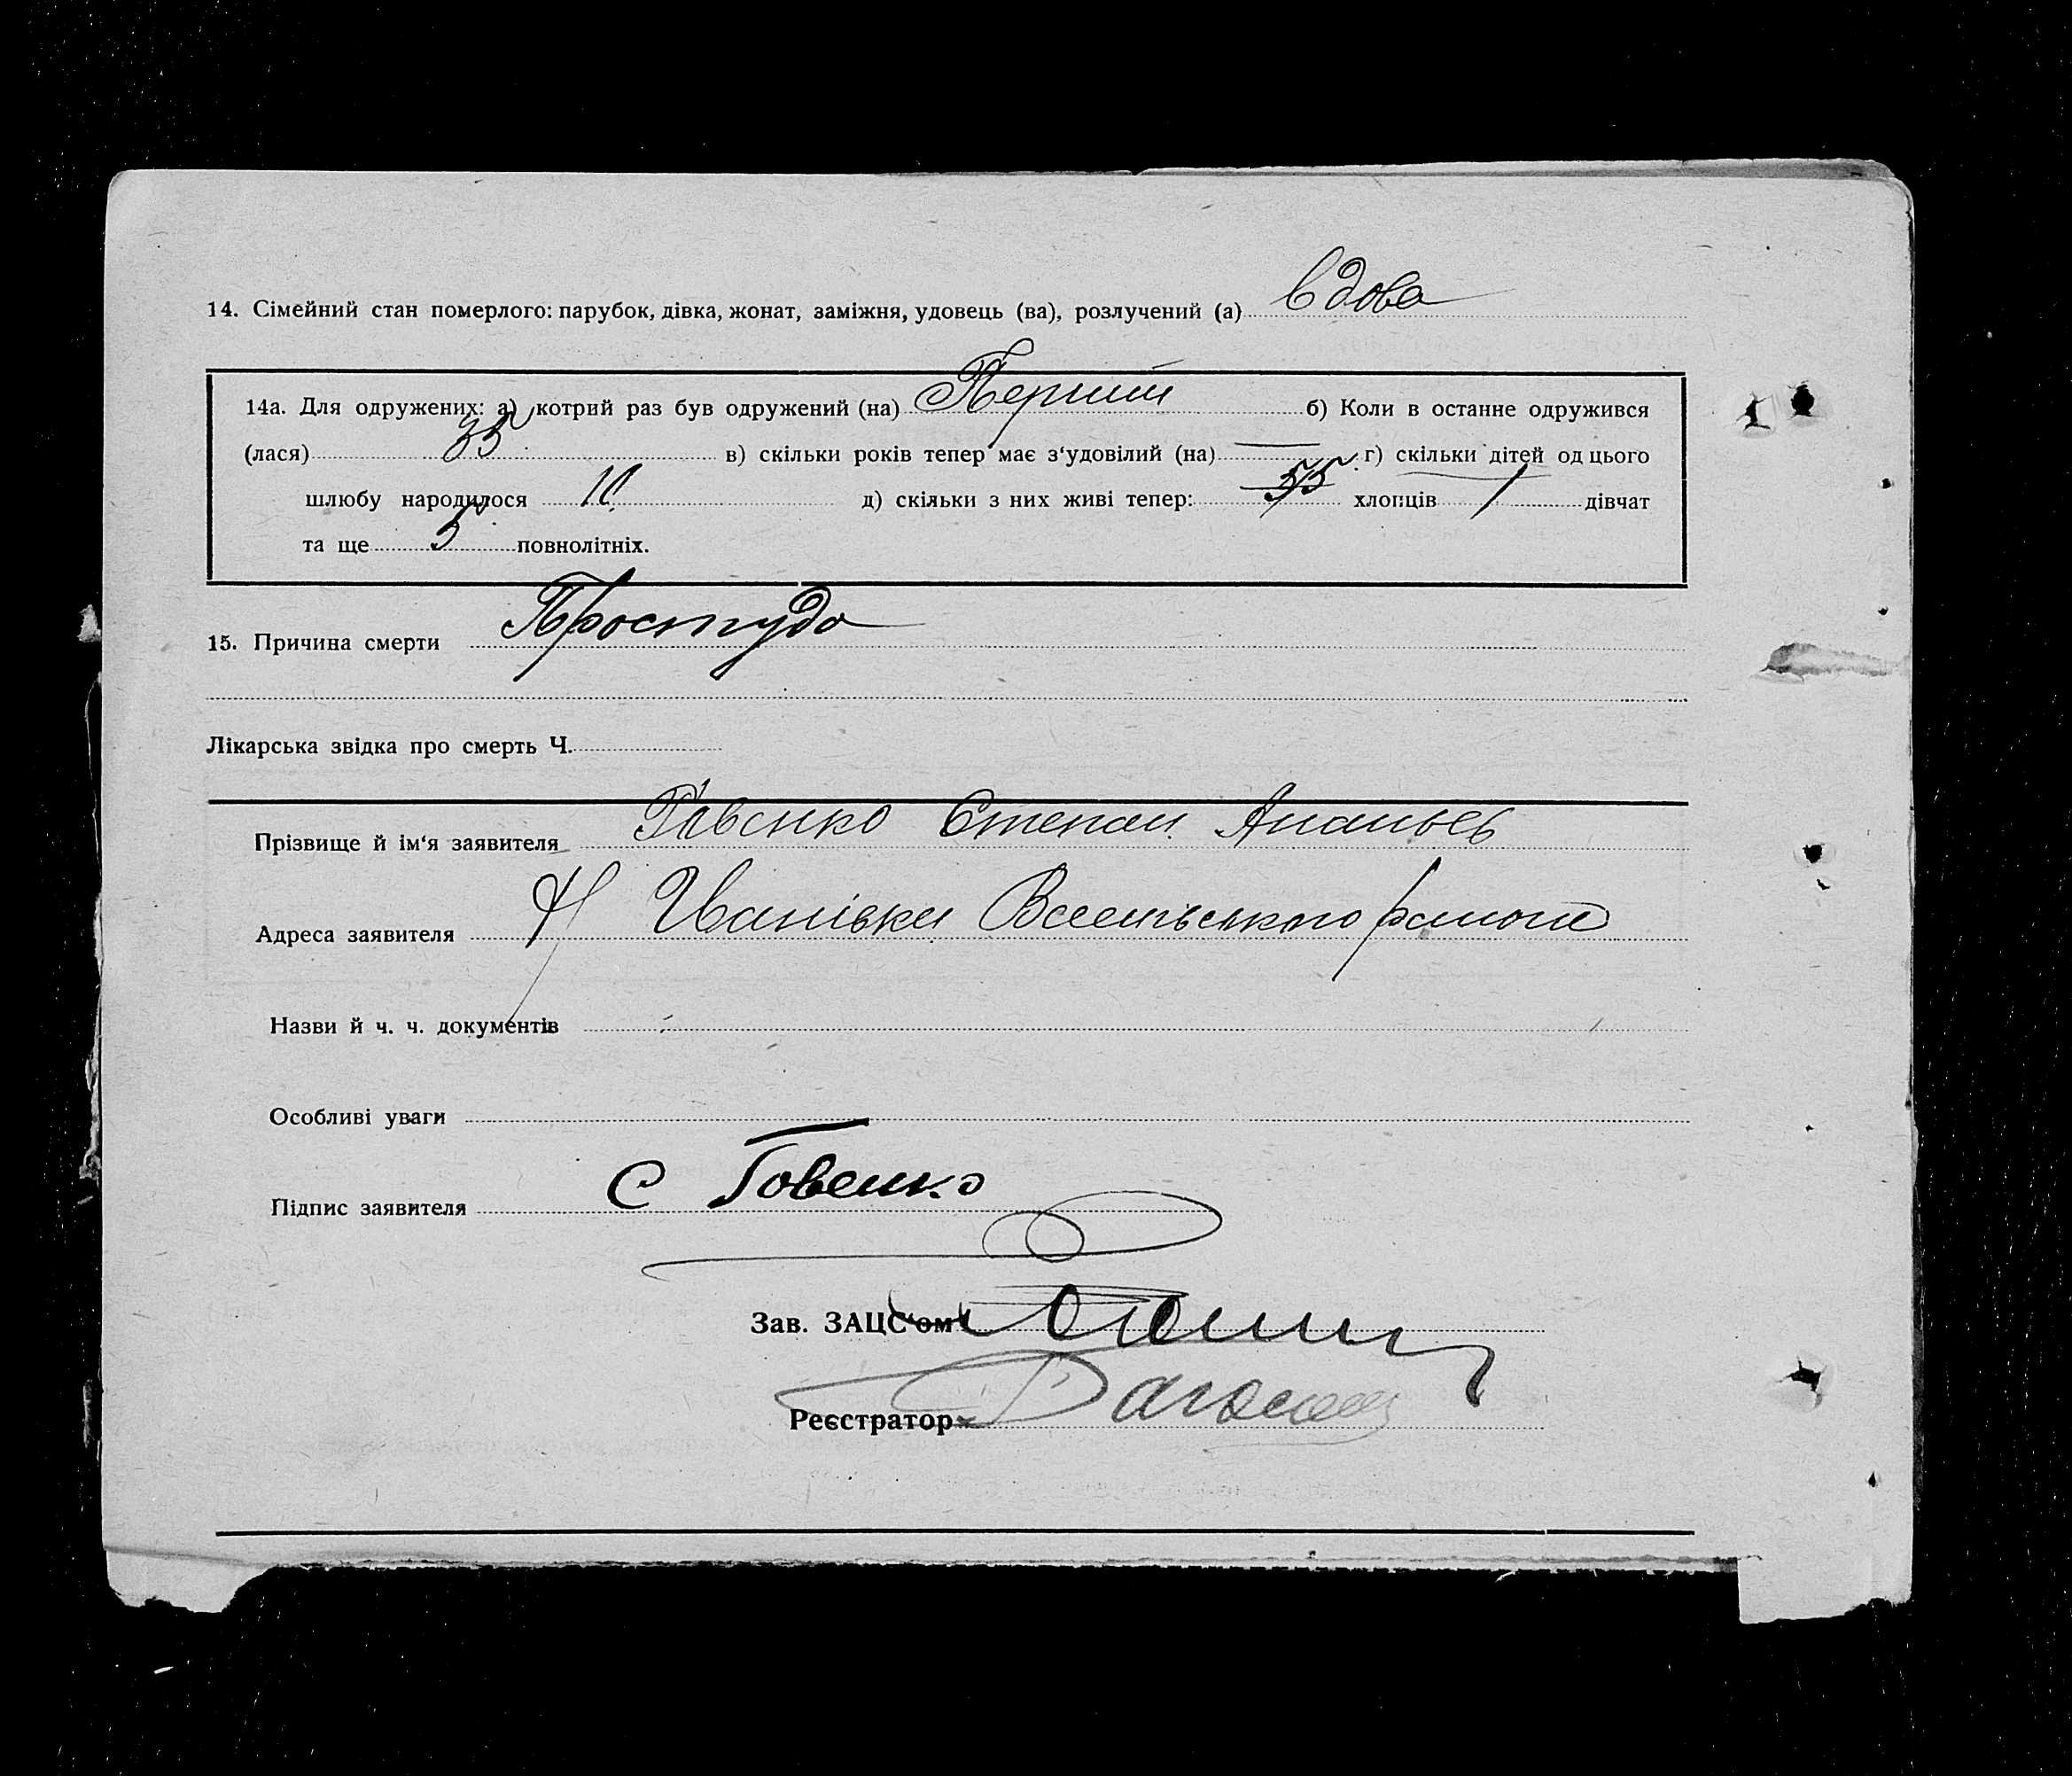 14. Сімейний стан померлого: парубок, дівка, жонат, заміжня, удовець (ва), розлучений (а) вдова
14а. Для одружених: а) котрий раз був одружений (на) Перший б) Коли в останне одружився
(лася) 35 в) скільки років тепер має з‘удовілий (на) — г) скільки дітей од цього
шлюбу народилося 10 д) скільки з них живі тепер: хлопців 1 дівчат
та ще 5 повнолітніх.
15. Причина смерти Простуда
Лікарська звідка про смерть Ч.
Прізвище й ім‘я заявителя Степан Ананьев
Адреса заявителя Іванівки района
Назви й ч. ч. документів
Особливі уваги
Підпис заявителя С Говенко
Зав. ЗАЦС‘ом
Реєстратор